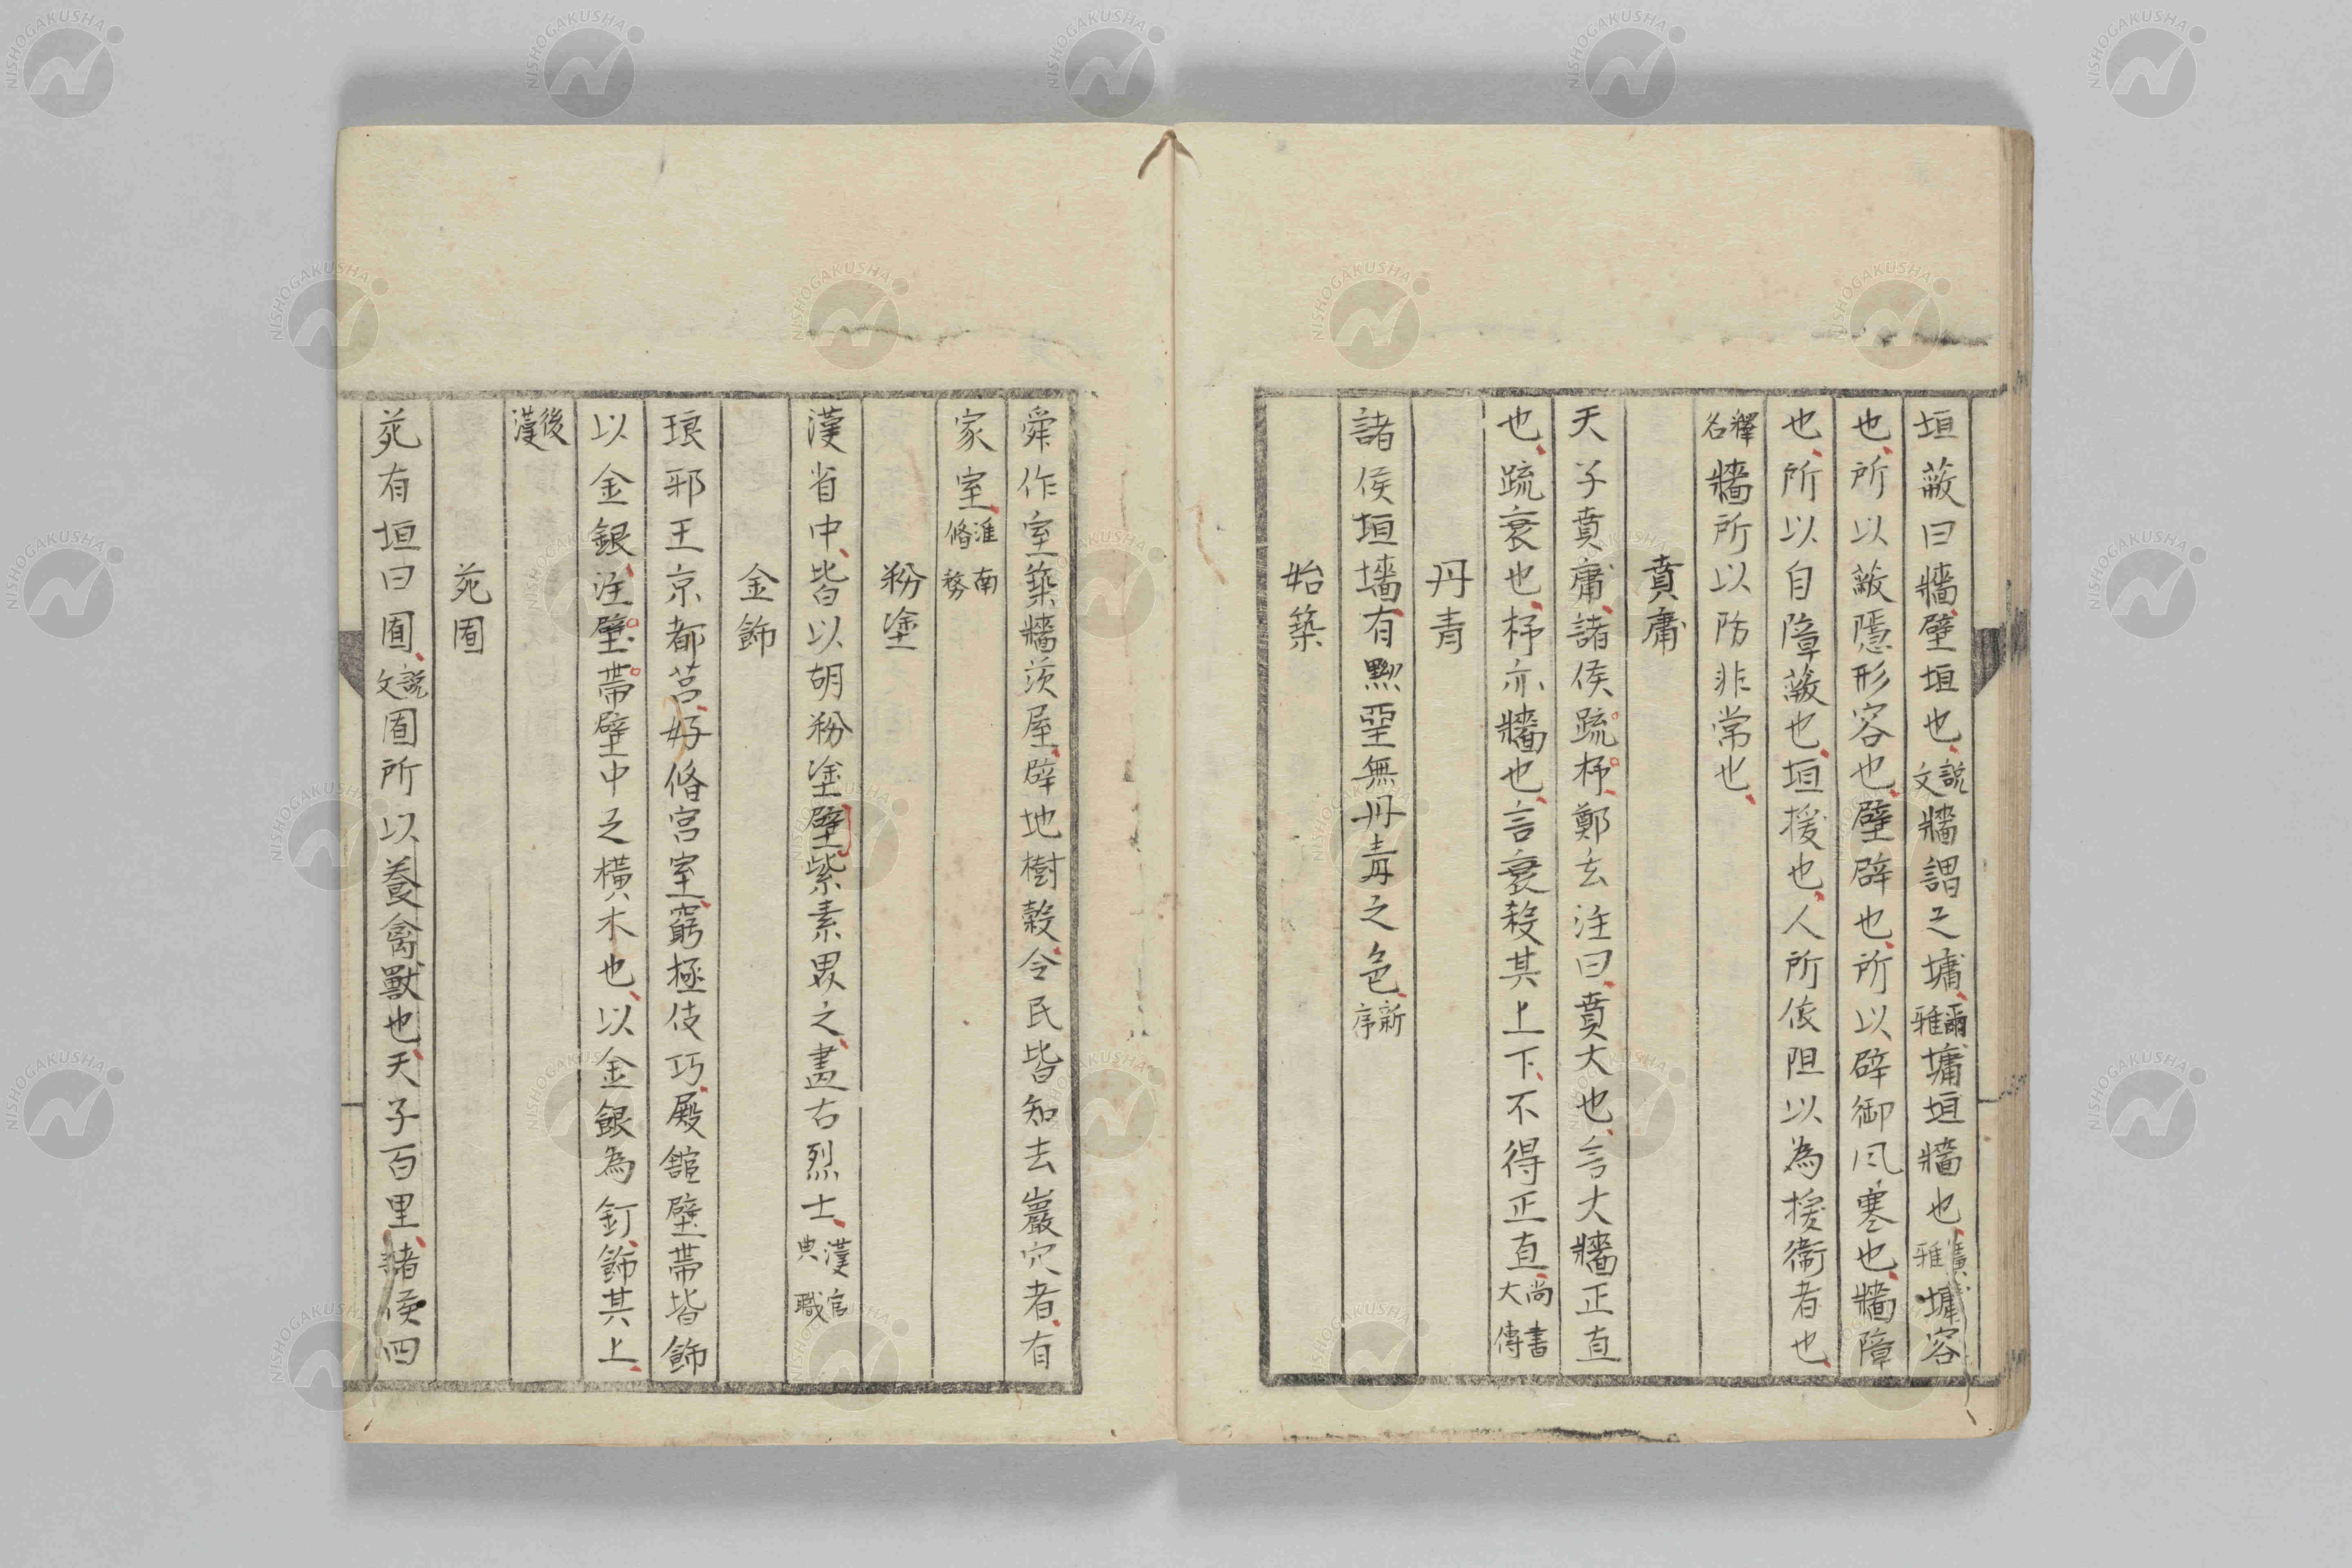 垣蔽曰牆壁垣也説文牆謂之墉爾雅墉垣牆也廣雅墉容
也所以蔽隱形容也壁辟也所以辟御風寒也牆障
也所以自障蔽也垣援也人所依阻以為援衞者也
釋名牆所以防非常也
賁庸
天子賁庸諸侯疏杼鄭玄注曰賁大也言大牆正直
也疏衰也杼亦牆也言衰殺其上下不得正直尚書大傳
丹青
諸侯垣墻有黝堊無丹青之色新序
始築
舜作室築牆茨屋辟地樹穀令民皆知去巖穴者有
家室淮南脩務
粉塗
漢省中皆以胡粉塗壁紫素界之畫古烈士漢官典職
金飾
琅邪王京都莒好脩宮室窮極伎巧殿館壁帶皆飾
以金銀注壁帶壁中之橫木也以金銀為釭飾其上
後漢
苑囿
苑有垣曰囿説文囿所以養禽獸也天子百里諸侯四
NISHOGAKUSHA